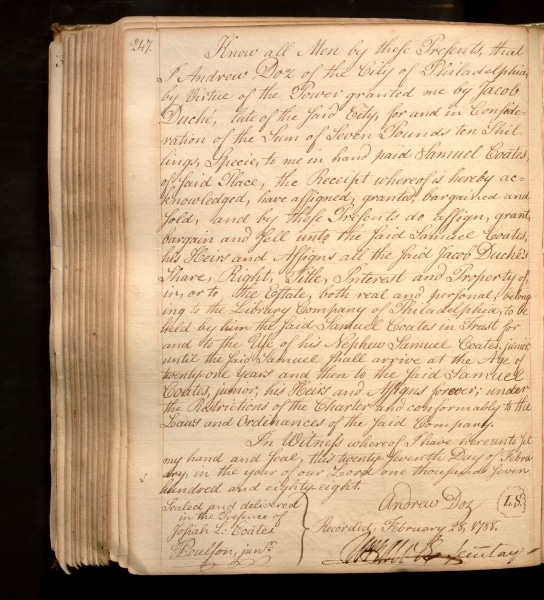 247.
Know all Men by these Presents, that
I Andrew Doz of the City of Philadelphia,
by Virtue of the Power granted me by Jacob
Duché, late of the said City, for and in Conside-
ration of the Sum of Seven Pounds ten Shil-
lings, Specie, to me in hand paid Samuel Coates,
of said Place, the Receipt whereof is hereby ac-
knowledged, have assigned, granted, bargained and
sold, and by these Presents do assign, grant,
bargain and sell unto the said Samuel Coates,
his Heirs and Assigns all the said Jacob Duché's
Share, Right, Title, Interest and Property of,
in, or to the Estate, both real and personal, belong
ing to the Library Company of Philadelphia, to be
held by him the said Samuel Coates in Trust for
and to the Use of his Nephew Samuel Coates, junior
until the said Samuel shall arrive at the Age of
twenty-one Years and then to the said Samuel
Coates, junior, his Heirs and Assigns forever; under
the Restrictions of the Charter and conformably to the
Laws and Ordinances of the said Company.
In Witness whereof I have hereunto set
my hand and seal, this twenty seventh Day of Febru
ary, in the year of our Lord one thousand seven
hundred and eighty eight.
Sealed and delivered
in the Presence of
Josiah L. Coates
Poulson, junr.
Andrew Doz
L.S.
Recorded, February 28, 1788.
Secretary